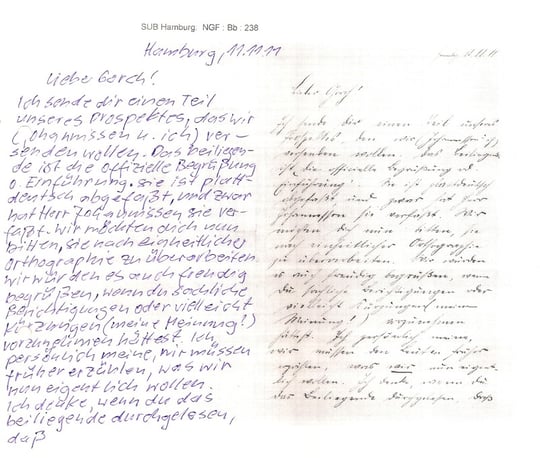 SUB Hamburg. NGF : Bb : 238
Hamburg, 11.11.11
Lieber Gorch!
Ich sende dir einen Teil
unseres Prospektes, das wir
(Johannissen u. ich) ver-
senden wollen. Das beiliegen-
de ist die offizielle Begrüßung
o. Einführung. Sie ist platt-
deutsch abgefaßt, und zwar
hat Herr Johannissen sie ver-
faßt. Wir möchten dich nun
bitten, sie nach eigheitlicher
Orthographie zu überarbeiten.
Wir würden es auch freudig
begrüßen, wenn du sachliche
Berichtigungen oder vielleicht
Kürzungen (meine Meinung!)
vorzunehmen hättest. Ich
persönlich meine, wir müssen
früher erzählen, was wir
nun eigentlich wollen.
Ich denke, wenn du das
beiliegende durchgelesen,
daß
11.11.11
Lieber Gorch!
ich sende dir einen Teil unseres
Prospektes, den wir (Johannissen u. ich)
versenden wollen. Das beiliegende
ist die offizielle Begrüßung od.
Einführung. Sie ist plattdeutsch
abgefaßt und zwar hat Herr
Johannissen sie verfaßt. Wir
möchten dich nun bitten, sie
nach einheitlicher Orthographie
zu überarbeiten. Wir würden
es auch freudig begrüßen, wenn
du sachliche Berichtigungen oder
vielleicht Kürzungen (meine
Meinung!) vorzunehmen
hättest. Ich persönlich meine,
wir müssen den Leuten früher
erzählen, was wir nun eigent-
lich wollen. Ich denke, wenn du
das Beiliegende durchgelesen, daß